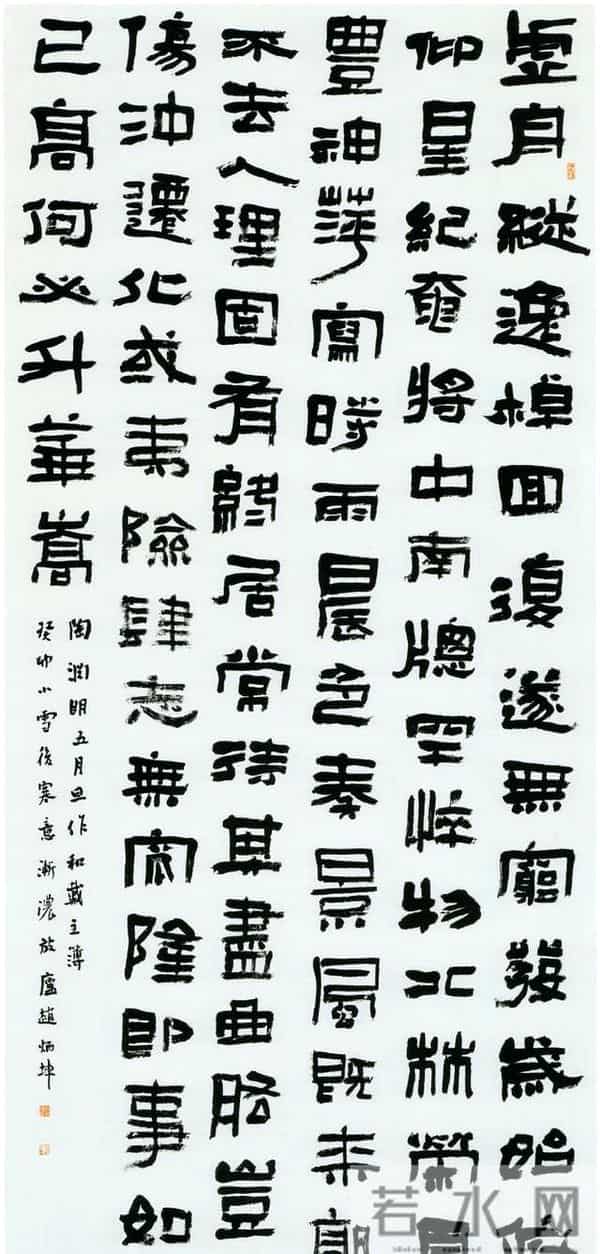 虛舟縱逸棹回復遂無窮發歲始俛
仰星紀奄將中南牕罕悴物北林榮且
豐神萍寫時雨晨色奏景風既來孰
不去人理固有終居常待其盡曲肱豈
傷沖遷化或夷險肆志無窊隆即事如
已高何必升華嵩
陶淵明五月旦作和戴主簿
癸卯小雪後寒意漸濃放廬趙炳坤
若水网